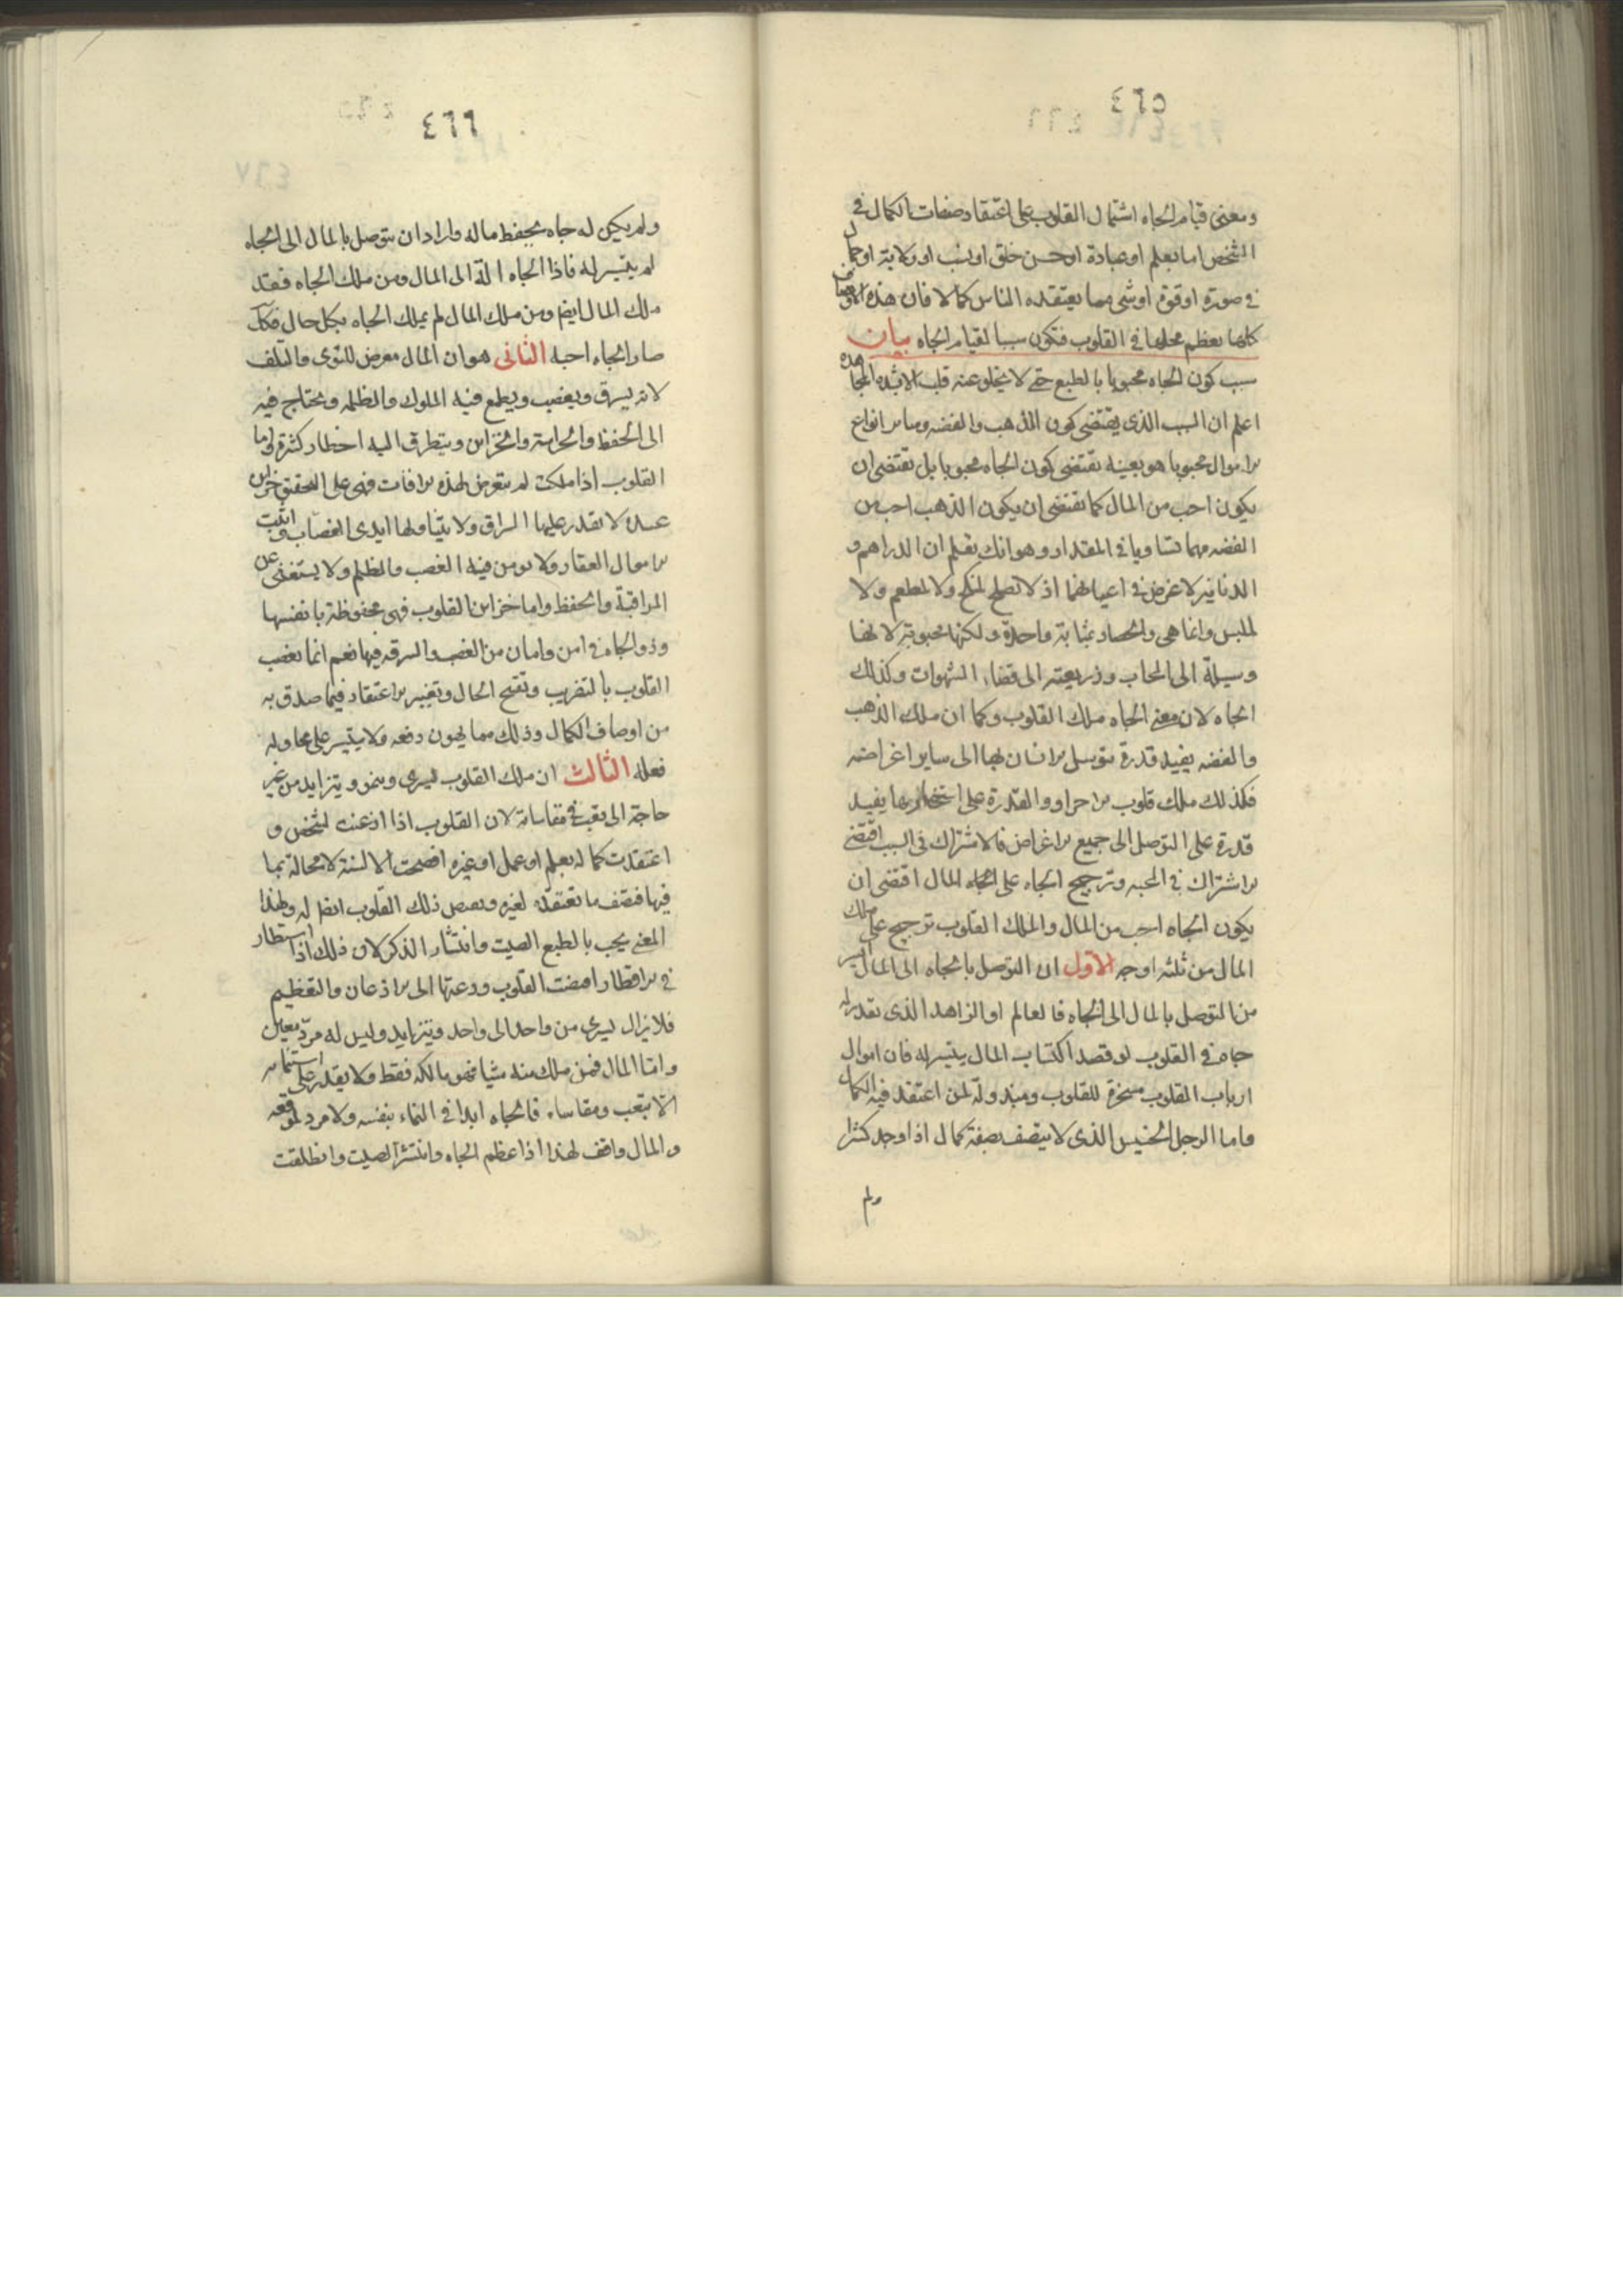 ٤٦٥
ومعنى قيام الجاه اشتمال القلوب على اعتقاد صفات الكمال في
الشخص اما بعلم او عبادة او حسن خلق او نسب او ولاية او جمال
في صورة او قوة او شى مما يعتقده الناس كمالا فان هذه الاوصاف
كلها تعظم محلها في القلوب فتكون سببا لقيام الجاه بيان
سبب كون الجاه محبوبا بالطبع حتى لا يخلو عنه قلب الا بشدة المجاهدة
اعلم ان السبب الذى يقتضى كون الذهب والفضه وسائر انواع
الاموال محبوبا هو بعينه يقتضى كون الجاه محبوبا بل تقتضى ان
يكون احب من المال كما تقتضى ان يكون الذهب احب من
الفضه مهما تساويا في المقدار وهو انك تعلم ان الدراهم و
الدنانير لا غرض في اعيانهما اذ لا تصلح لمنكح ولا لمطعم ولا
لملبس وانما هى والحصا بمثابة واحدة ولكنها محبوبة لانها
وسيلة الى المحاب وذريعة الى قضاء الشهوات وكذلك
الجاه لان معنى الجاه ملك القلوب وكما ان ملك الذهب
والفضه يفيد قدرة يتوسل الانسان بها الى ساير اغراضه
فكذلك ملك قلوب الاحرار والقدرة على استسخارها يفيد
قدرة على التوصل الى جميع الاغراض فالاشتراك في السبب اقتضى
الاشتراك في المحبه وترجيح الجاه على المال اقتضى ان
يكون الجاه احب من المال والملك القلوب ترجيح على ملك
المال من ثلثه اوجه الاول ان التوصل بالجاه الى المال ايسر
من التوصل بالمال الى الجاه فالعالم او الزاهد الذى تقدر له
جاه في القلوب لو قصد اكتساب المال يتيسر له فان اموال
ارباب القلوب مسخرة للقلوب ومبذولة لمن اعتقد فيه الكمال
واما الرجل الخسيس الذى لا يتصف بصفة كمال اذا وجد كنزا
ولم
٤٦٦
ولم يكن له جاه يحفظ ماله واراد ان يتوصل بالمال الى الجاه
لم يتيسر له فاذا الجاه الة الى المال ومن ملك الجاه فقد
ملك المال ايضا ومن ملك المال لم يملك الجاه بكل حال
صار الجاه احب الثانى هو ان المال معرض للتوى والتلف
لانه يسرق ويغصب ويطمع فيه الملوك والظلمه ويحتاج فيه
الى الحفظ والحراسة والخزاين ويتطرق اليه اخطار كثيرة واما
القلوب اذا ملكت لم يتعرض لهذه الافات فهى على التحقيق خزاين
لا يقدر عليها السراق ولا يتناولها ايدى الغصاب واثبت
الاموال العقار ولا يومن فيه الغصب والظلم ولا يستغنى عن
المراقبة والحفظ واما خزاين القلوب فهى محفوظة بانفسها
وذو الجاه في امن وامان من الغصب والسرقه فيها نعم انما تغصب
القلوب بالتضريب وتقبيح الحال وتغيير الاعتقاد فيما صدق به
من اوصاف الكمال وذلك مما يهون دفعه ولا يتيسر على محاوله
فعله الثالث ان ملك القلوب يسرى وينمو ويتزايد من غير
حاجة الى تعب في مقاساة لان القلوب اذا اذعنت لشخص و
اعتقدت كماله بعلم او عمل او غيره افصحت الالسنة لا محالة بما
فيها فتصف ما تعتقده لغيره ذلك القلوب ايضا له ولهذا
المعنى يحب بالطبع الصيت وانتشار الذكر لان ذلك اذا استطار
في الاقطار القلوب ودعتها الى الاذعان والتعظيم
فلا يزال يسرى من واحد الى واحد ويتزايد وليس له مرد معين
واما المال فمن ملك منه شيا فهو مالكه فقط ولا يقدر على استنمائه
الا بتعب ومقاساه فالجاه ابدا في النماء بنفسه ولا مرد لموقعه
والمال واقف لهذا اذا عظم الجاه وانتشر الصيت وانطلقت